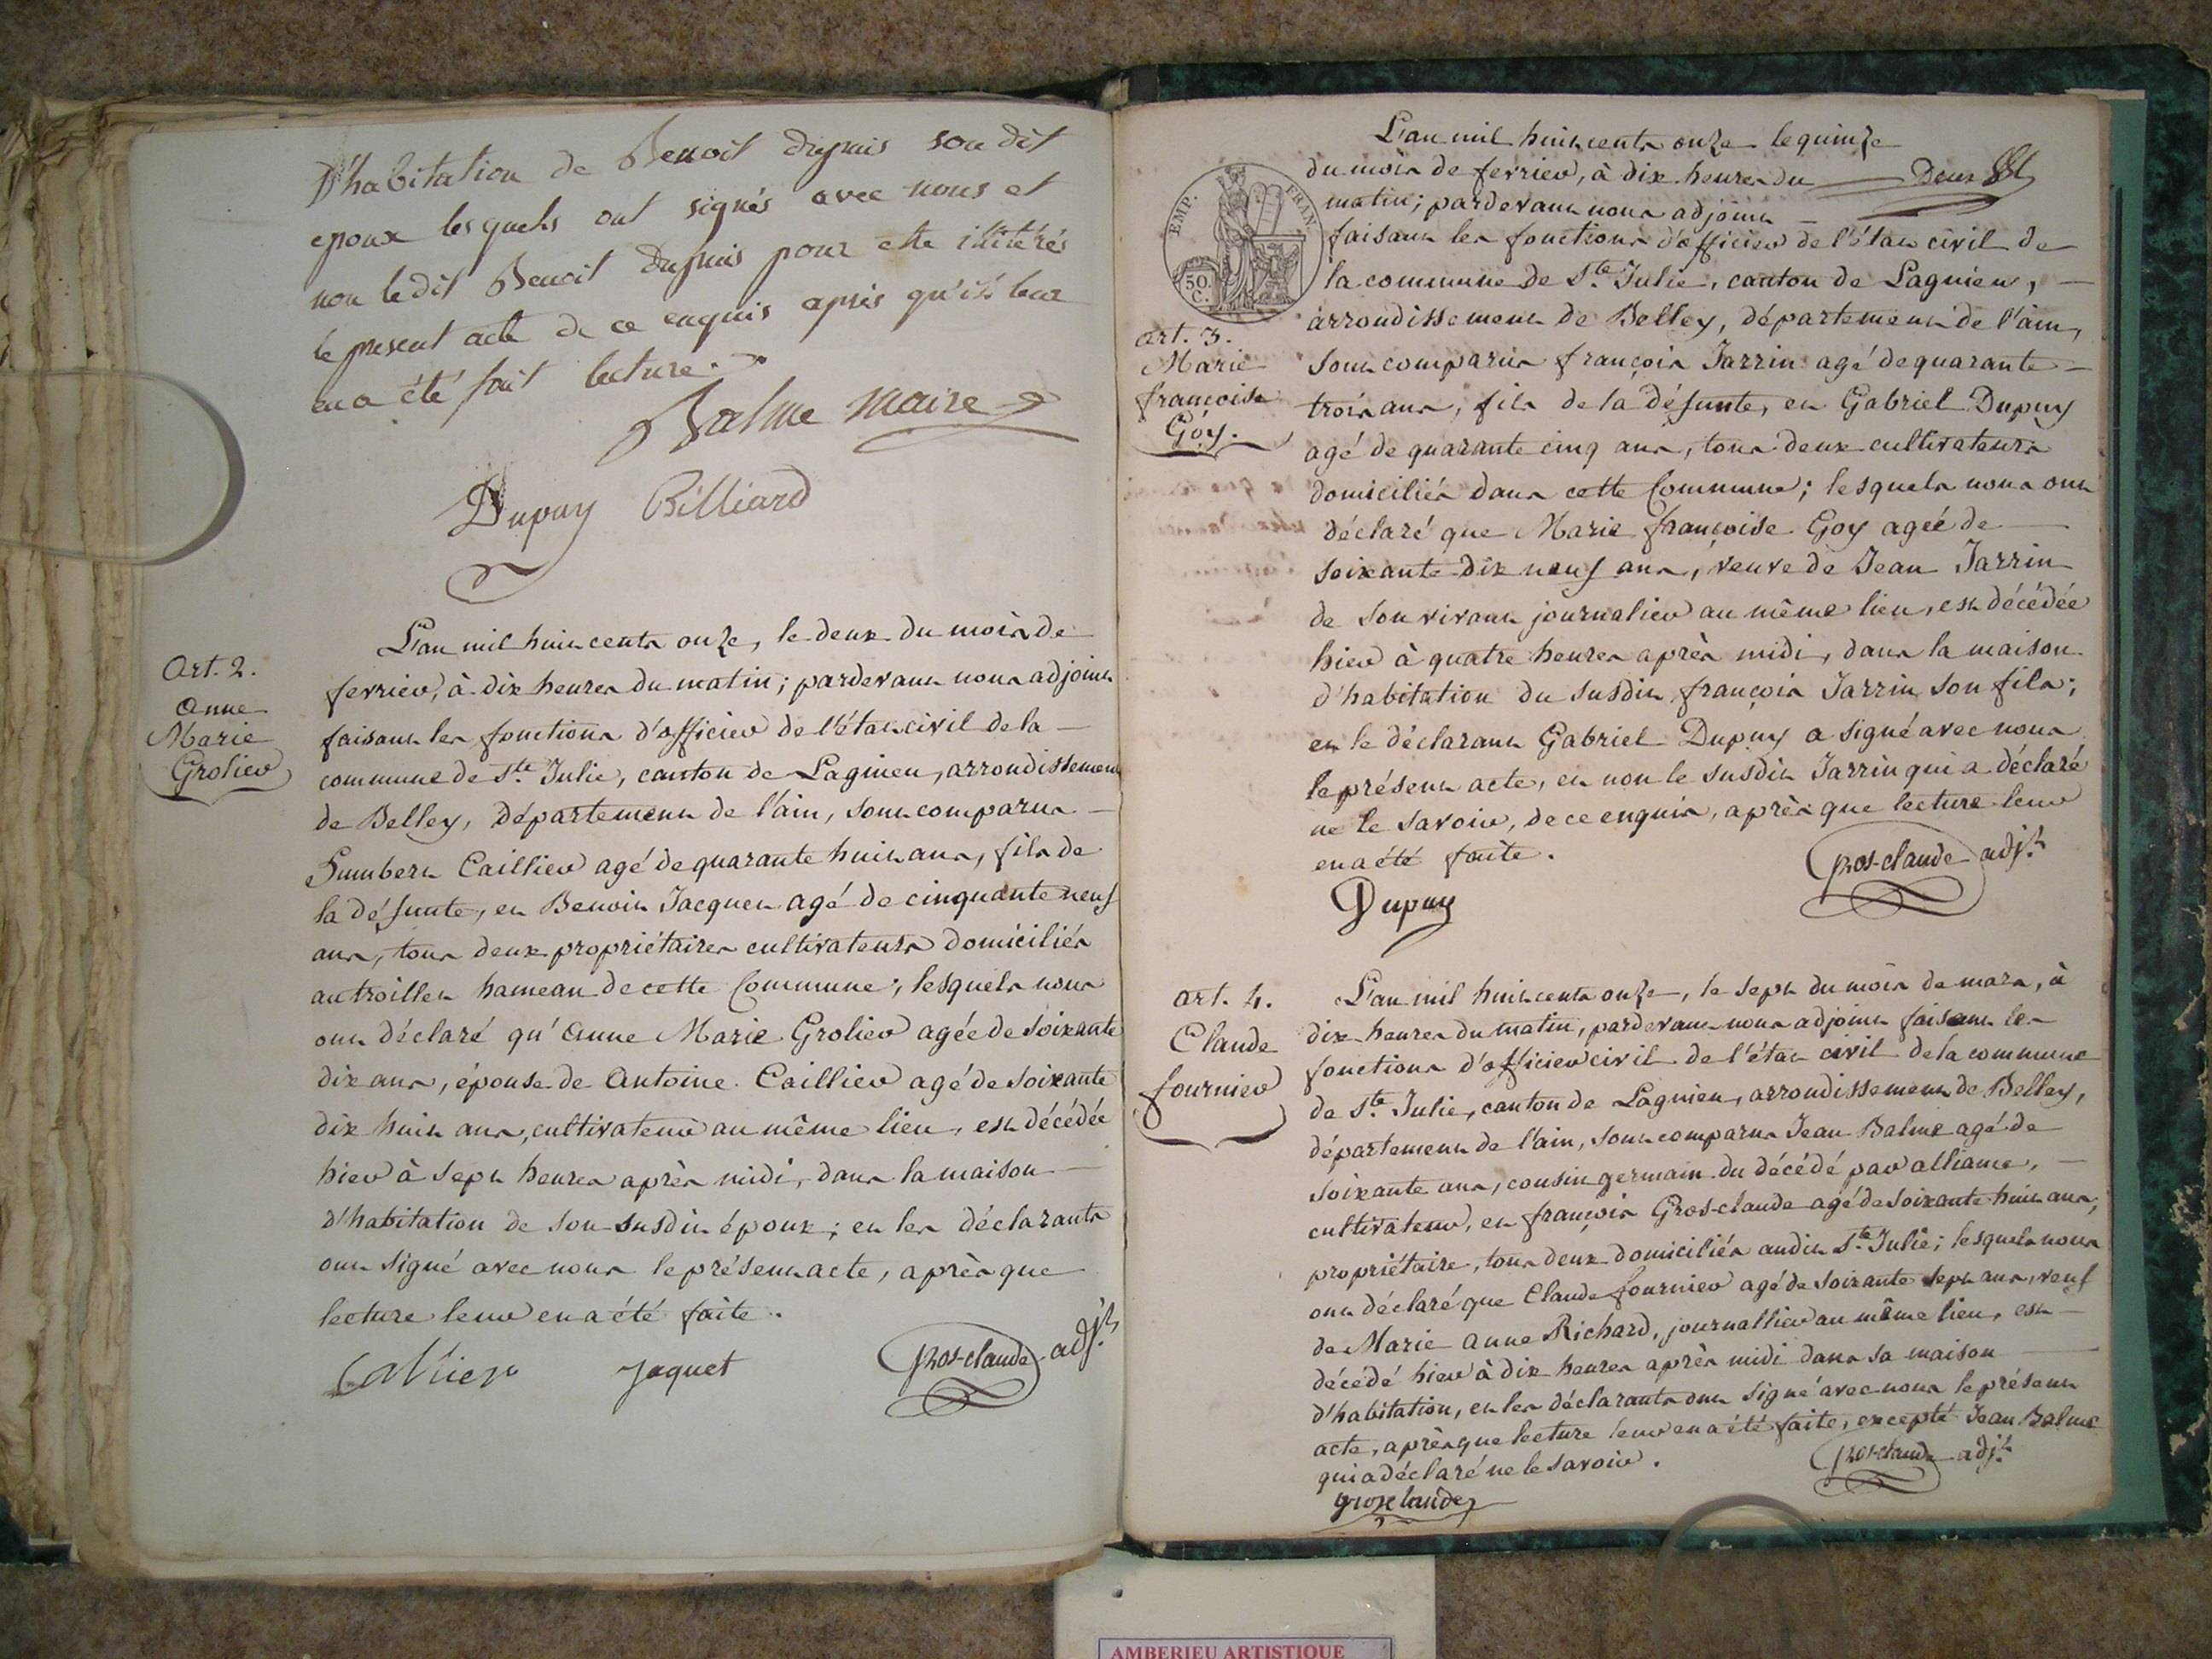 D'habitation de Benoit dupuis son dit
epoux lesquels ont signés avec nous et
non le dit Benoit dupuis pour etre illitérés
le present acte de ce enquis après qu'il leur
en a été fait lecture.
Balme Maire
Dupuy Billiard
Art. 2.
Anne
Marie
Grolier
L'an mil huit cents onze, le deux du mois de
fevrier, à dix heures du matin; pardevant nous adjoint
faisant les fonctions d'officier de l'état civil de la
commune de Ste Julie, canton de Lagnieu, arrondissement
de Belley, département de l'ain, sont comparus
humbert Caillier agé de quarante huit ans, fils de
la défunte, et Benoit Jacquet agé de cinquante neuf
ans, tous deux propriétaires cultivateurs domiciliés
au troillet hameau de cette Commune; lesquels nous
ont déclaré qu'Anne Marie Grolier agée de soixante
dix ans, épouse de Antoine Caillier agé de soixante
dix huit ans, cultivateur au même lieu, est décédée
hier à sept heures après midi, dans la maison
d'habitation de son susdit époux; et les déclarants
ont signé avec nous le présent acte, après que
lecture leur en a été faite.
Callier Jaquet Gros-claude adj.t
L'an mil huit cents onze le quinze
du mois de fevrier, à dix heures du Deux
matin; pardevant nous adjoint
EMP. FRAN.
50. C.
faisant les fonctions d'officier de l'état civil de
la commune de Ste Julie, canton de Lagnieu,
arrondissement de Belley, département de l'ain,
art. 3.
Marie
françoise
Goy.
sont comparus françois Jarrin agé de quarante
trois ans, fils de la défunte, et Gabriel Dupuy
agé de quarante cinq ans, tous deux cultivateurs
domiciliés dans cette Commune; lesquels nous ont
déclaré que Marie françoise Goy agée de
soixante dix neuf ans, veuve de Jean Jarrin
de son vivant journalier au même lieu, est décédée
hier à quatre heures après midi, dans la maison
d'habitation du susdit françois Jarrin son fils;
et le déclarant Gabriel Dupuy a signé avec nous
le présent acte, et non le susdit Jarrin qui a déclaré
ne le savoir, de ce enquis, après que lecture leur
en a été faite.
Gros-claude adj.t
Dupuy
art. 4.
Claude
fournier
L'an mil huit cents onze, le sept du mois de mars, à
dix heures du matin, pardevant nous adjoint faisant les
fonctions d'officier civil de l'état civil de la commune
de Ste Julie, canton de Lagnieu, arrondissement de Belley,
département de l'ain, sont comparus Jean Balme agé de
soixante ans, cousin germain du décédé par alliance,
cultivateur, et françois Gros-claude agé de soixante huit ans,
propriétaire, tous deux domiciliés audit Ste Julie; lesquels nous
ont déclaré que Claude fournier agé de soixante sept ans, veuf
de Marie anne Richard, journallier au même lieu, est
décédé hier à dix heures après midi dans sa maison
d'habitation, et les déclarants ont signé avec nous le présent
acte, après que lecture leur en a été faite, excepté Jean Balme
qui a déclaré ne le savoir.
Gros-claude adj.t
groxclaude
AMBERIEU ARTISTIQUE